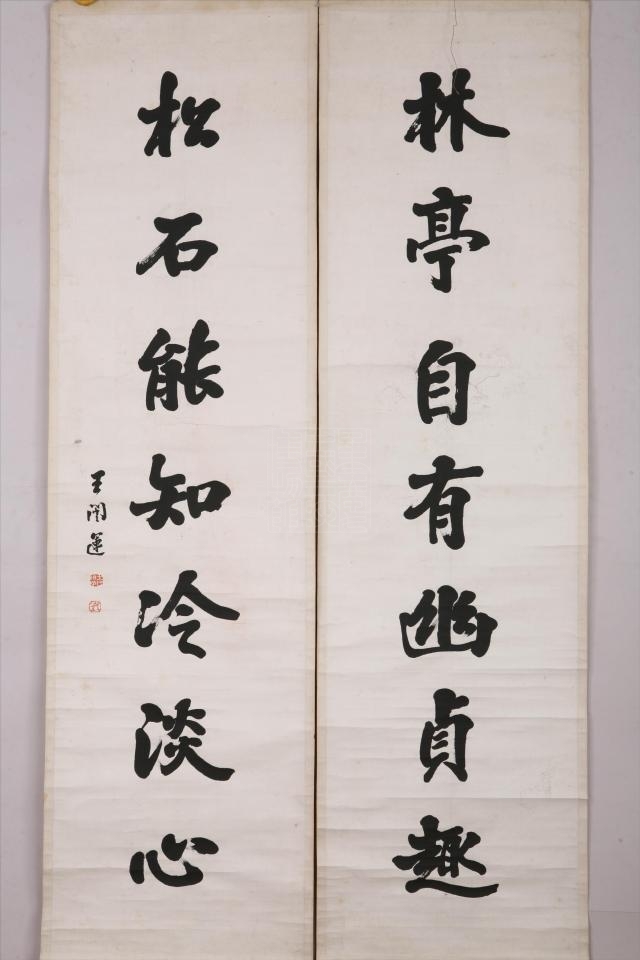 林亭自有幽貞趣
松石能知冷淡心
王闓運